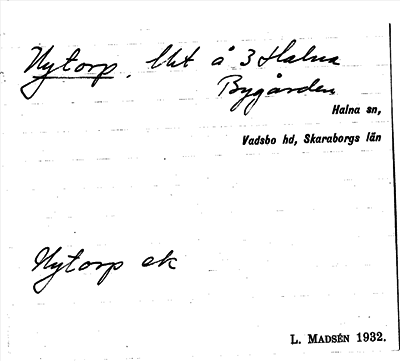 Nytorp. lht å 3 Halna
Bygården
Halna sn,
Vadsbo hd, Skaraborgs län
Nytorp ek
L. MADSÉN 1932.